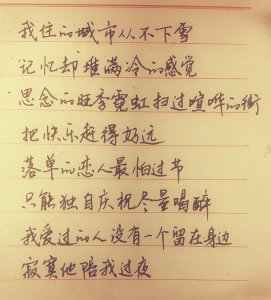 我住的城市从不下雪
记忆却堆满冷的感觉
思念的旺季霓虹扫过喧哗的街
把快乐赶得好远
落单的恋人最怕过节
只能独自庆祝尽量喝醉
我爱过的人没有一个留在身边
寂寞他陪我过夜